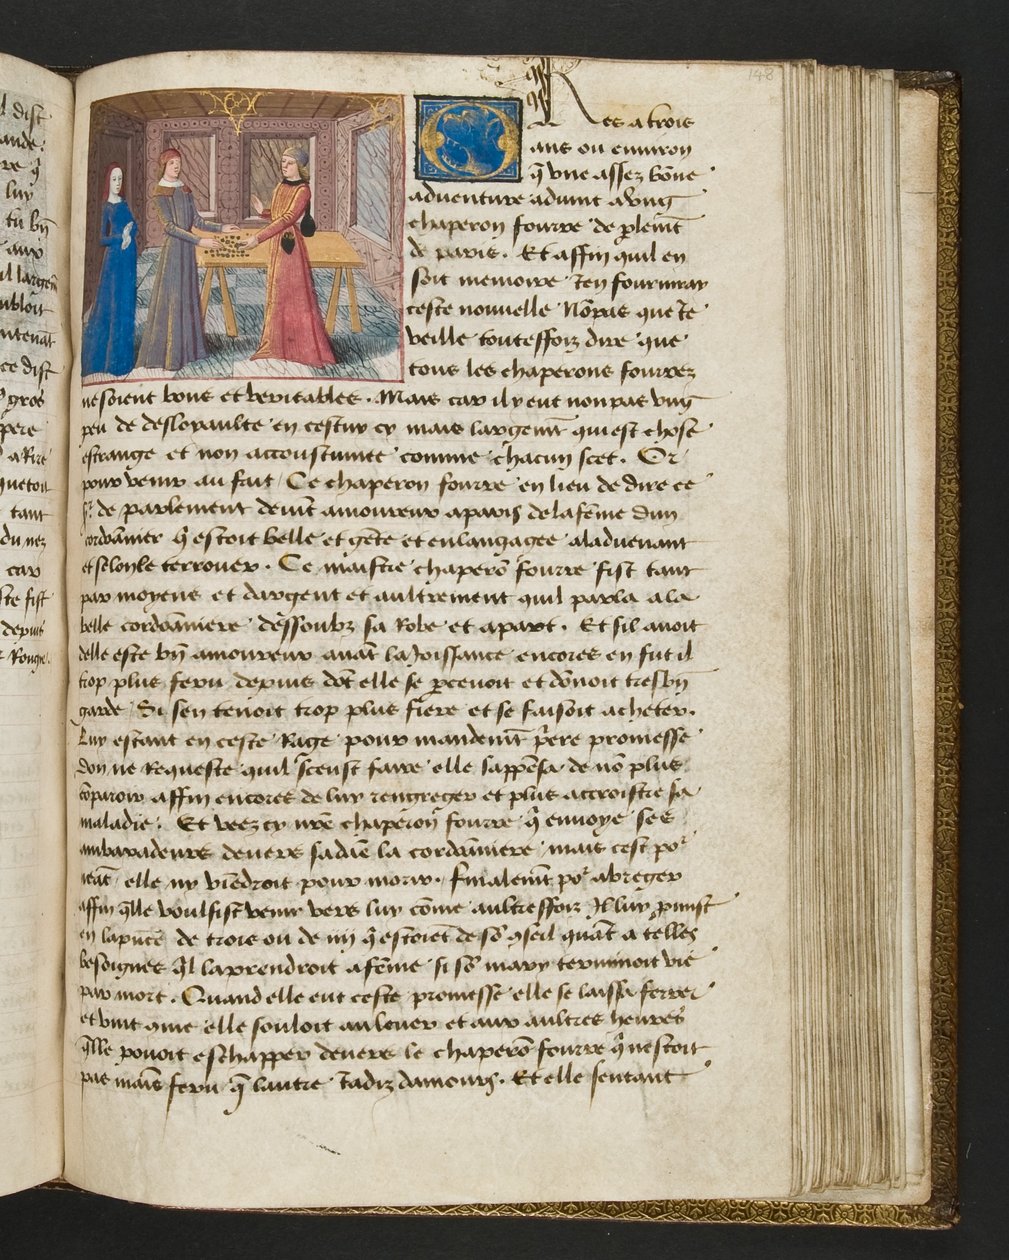 148
Res a trois
ans ou environ
q̃ vne assez bõne
aduenture aduint a vng
chaperon fourre de plemt̃
de paris. Et affin quil en
soit memoire Jen fourniray
ceste nouuelle Nõpas que Je
veille touteffoiz dire que
tous les chaperons fourrez
ne soient bons et veritables. Mais car il y eut non pas vng
peu de desloyaulte en cestuy cy mais largemt̃ qui est chose
estrange et non accoustumee comme chacun scet. Or
pour venir au fait Ce chaperon fourre en lieu de dire ce
sr de parlement deuĩt amoureux a paris de la fẽme dun
cordoãnier q̃ estoit belle et gẽte et enlangagee a laduenant
et selon le terrouer. Ce maistre chaperõ fourre fist tant
par moyens et dargent et aultrement quil parla a la
belle cordoãniere dessoubz sa robe et a part. Et sil auoit
delle este bñ amoureux auãt la Joissance encores en fut il
trop plus feru depuis dõt elle se p̃ceuoit et dõnoit tresbñ
garde Si sen tenoit trop plus fiere et se faisoit acheter.
Luy estant en ceste rage pour mandemt̃ p̃ere promesse
don ne requeste quil sceust faire elle sappẽsa de nõ plus
cõparoir affin encores de luy rengreger et plus accroistre sa
maladie. Et veez cy nr̃e chaperon fourre q̃ enuoye ses
ambaxadeurs deuers sa dãe la cordoãniere mais cest por
neãt elle ny viẽdroit pour morir. finalemt̃ por abreger
affin q̃lle voulsist venir vers luy cõme aultreffoiz Il luy p̃mist
en la p̃nce de trois ou de iiij q̃ estoiẽt de sõ 9seil quãt a telles
besoignes Il la prendroit a fẽme si sõ mary terminoit vie
par mort. Quand elle eut ceste promesse elle se laissa ferrer
et vint 9me elle souloit au leuer et aux aultres heures
q̃lle pouoit eschapper deuers le chaperõ fourre q̃ nestoit
pas mais feru q̃ lautre Jadiz damours. Et elle sentant